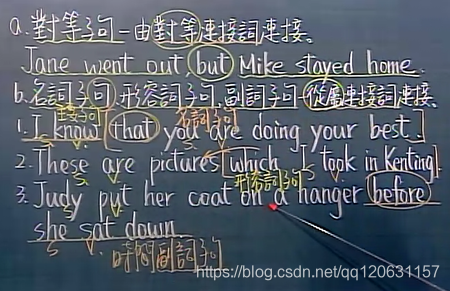 a. 對等子句－由對等連接詞連接。
Jane went out, but Mike stayed home.
b. 名詞子句,形容詞子句,副詞子句－從屬連接詞連接。
主要子句 名詞子句
1. I know that you are doing your best.
S. V. S. V.
2. These are pictures which I took in Kenting.
S. V. 形容詞子句
3. Judy put her coat on a hanger before
S. V.
she sat down.
S. V. 時間副詞子句
https://blog.csdn.net/qq120631157